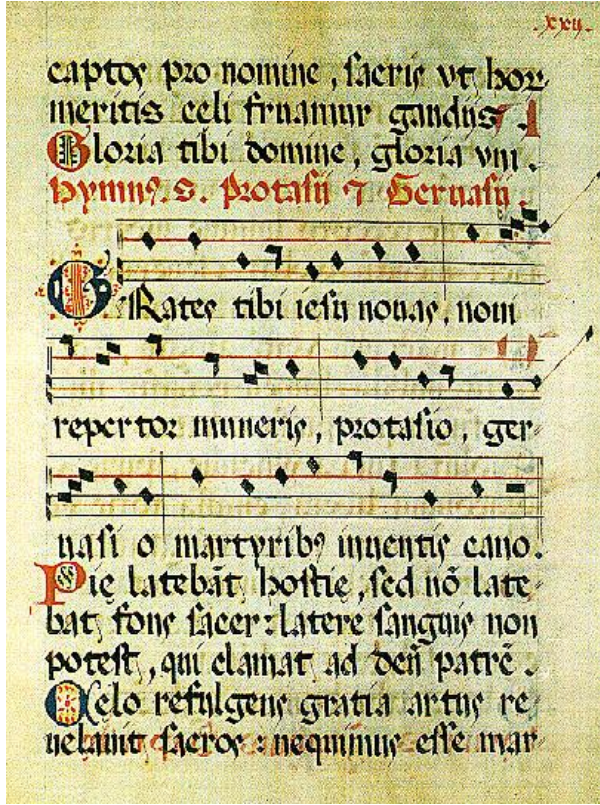 xxij.
captos pro nomine, sacris vt hor
meritis celi fruamur gaudijs.
Gloria tibi domine, gloria vni.
Hymnꝰ. S. Protasii ⁊ Geruasii.
GRates tibi iesu nouas, noui
repertor muneris, protasio, ger-
uasi o martyribꝰ inuentis cano.
Pie latebāt hostie, sed nō late-
bat fons sacer: latere sanguis non
potest, qui clamat ad deū patrē.
Celo refulgens gratia artus re-
uelauit sacros: nequimus esse mar-